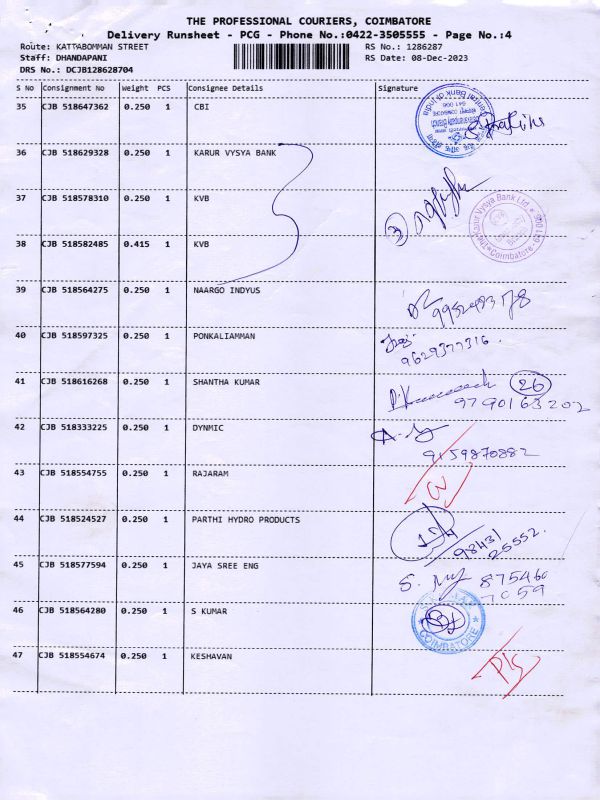 THE PROFESSIONAL COURIERS, COIMBATORE
Delivery Runsheet - PCG - Phone No.:0422-3505555 - Page No.:4
Route: KATTABOMMAN STREET RS No.: 1286287
Staff: DHANDAPANI RS Date: 08-Dec-2023
DRS No.: DCJB128628704
S No Consignment No Weight PCS Consignee Details Signature
35 CJB 518647362 0.250 1 CBI
Central Bank of India
36 CJB 518629328 0.250 1 KARUR VYSYA BANK
37 CJB 518578310 0.250 1 KVB
The Karur Vysya Bank Ltd
Coimbatore - 641 006
38 CJB 518582485 0.415 1 KVB
39 CJB 518564275 0.250 1 NAARGO INDYUS
40 CJB 518597325 0.250 1 PONKALIAMMAN
9629377316.
41 CJB 518616268 0.250 1 SHANTHA KUMAR 26
9790163202
42 CJB 518333225 0.250 1 DYNMIC
9159870882
43 CJB 518554755 0.250 1 RAJARAM
44 CJB 518524527 0.250 1 PARTHI HYDRO PRODUCTS
98431
25552.
45 CJB 518577594 0.250 1 JAYA SREE ENG 875460
7059
46 CJB 518564280 0.250 1 S KUMAR
COIMBATORE
47 CJB 518554674 0.250 1 KESHAVAN